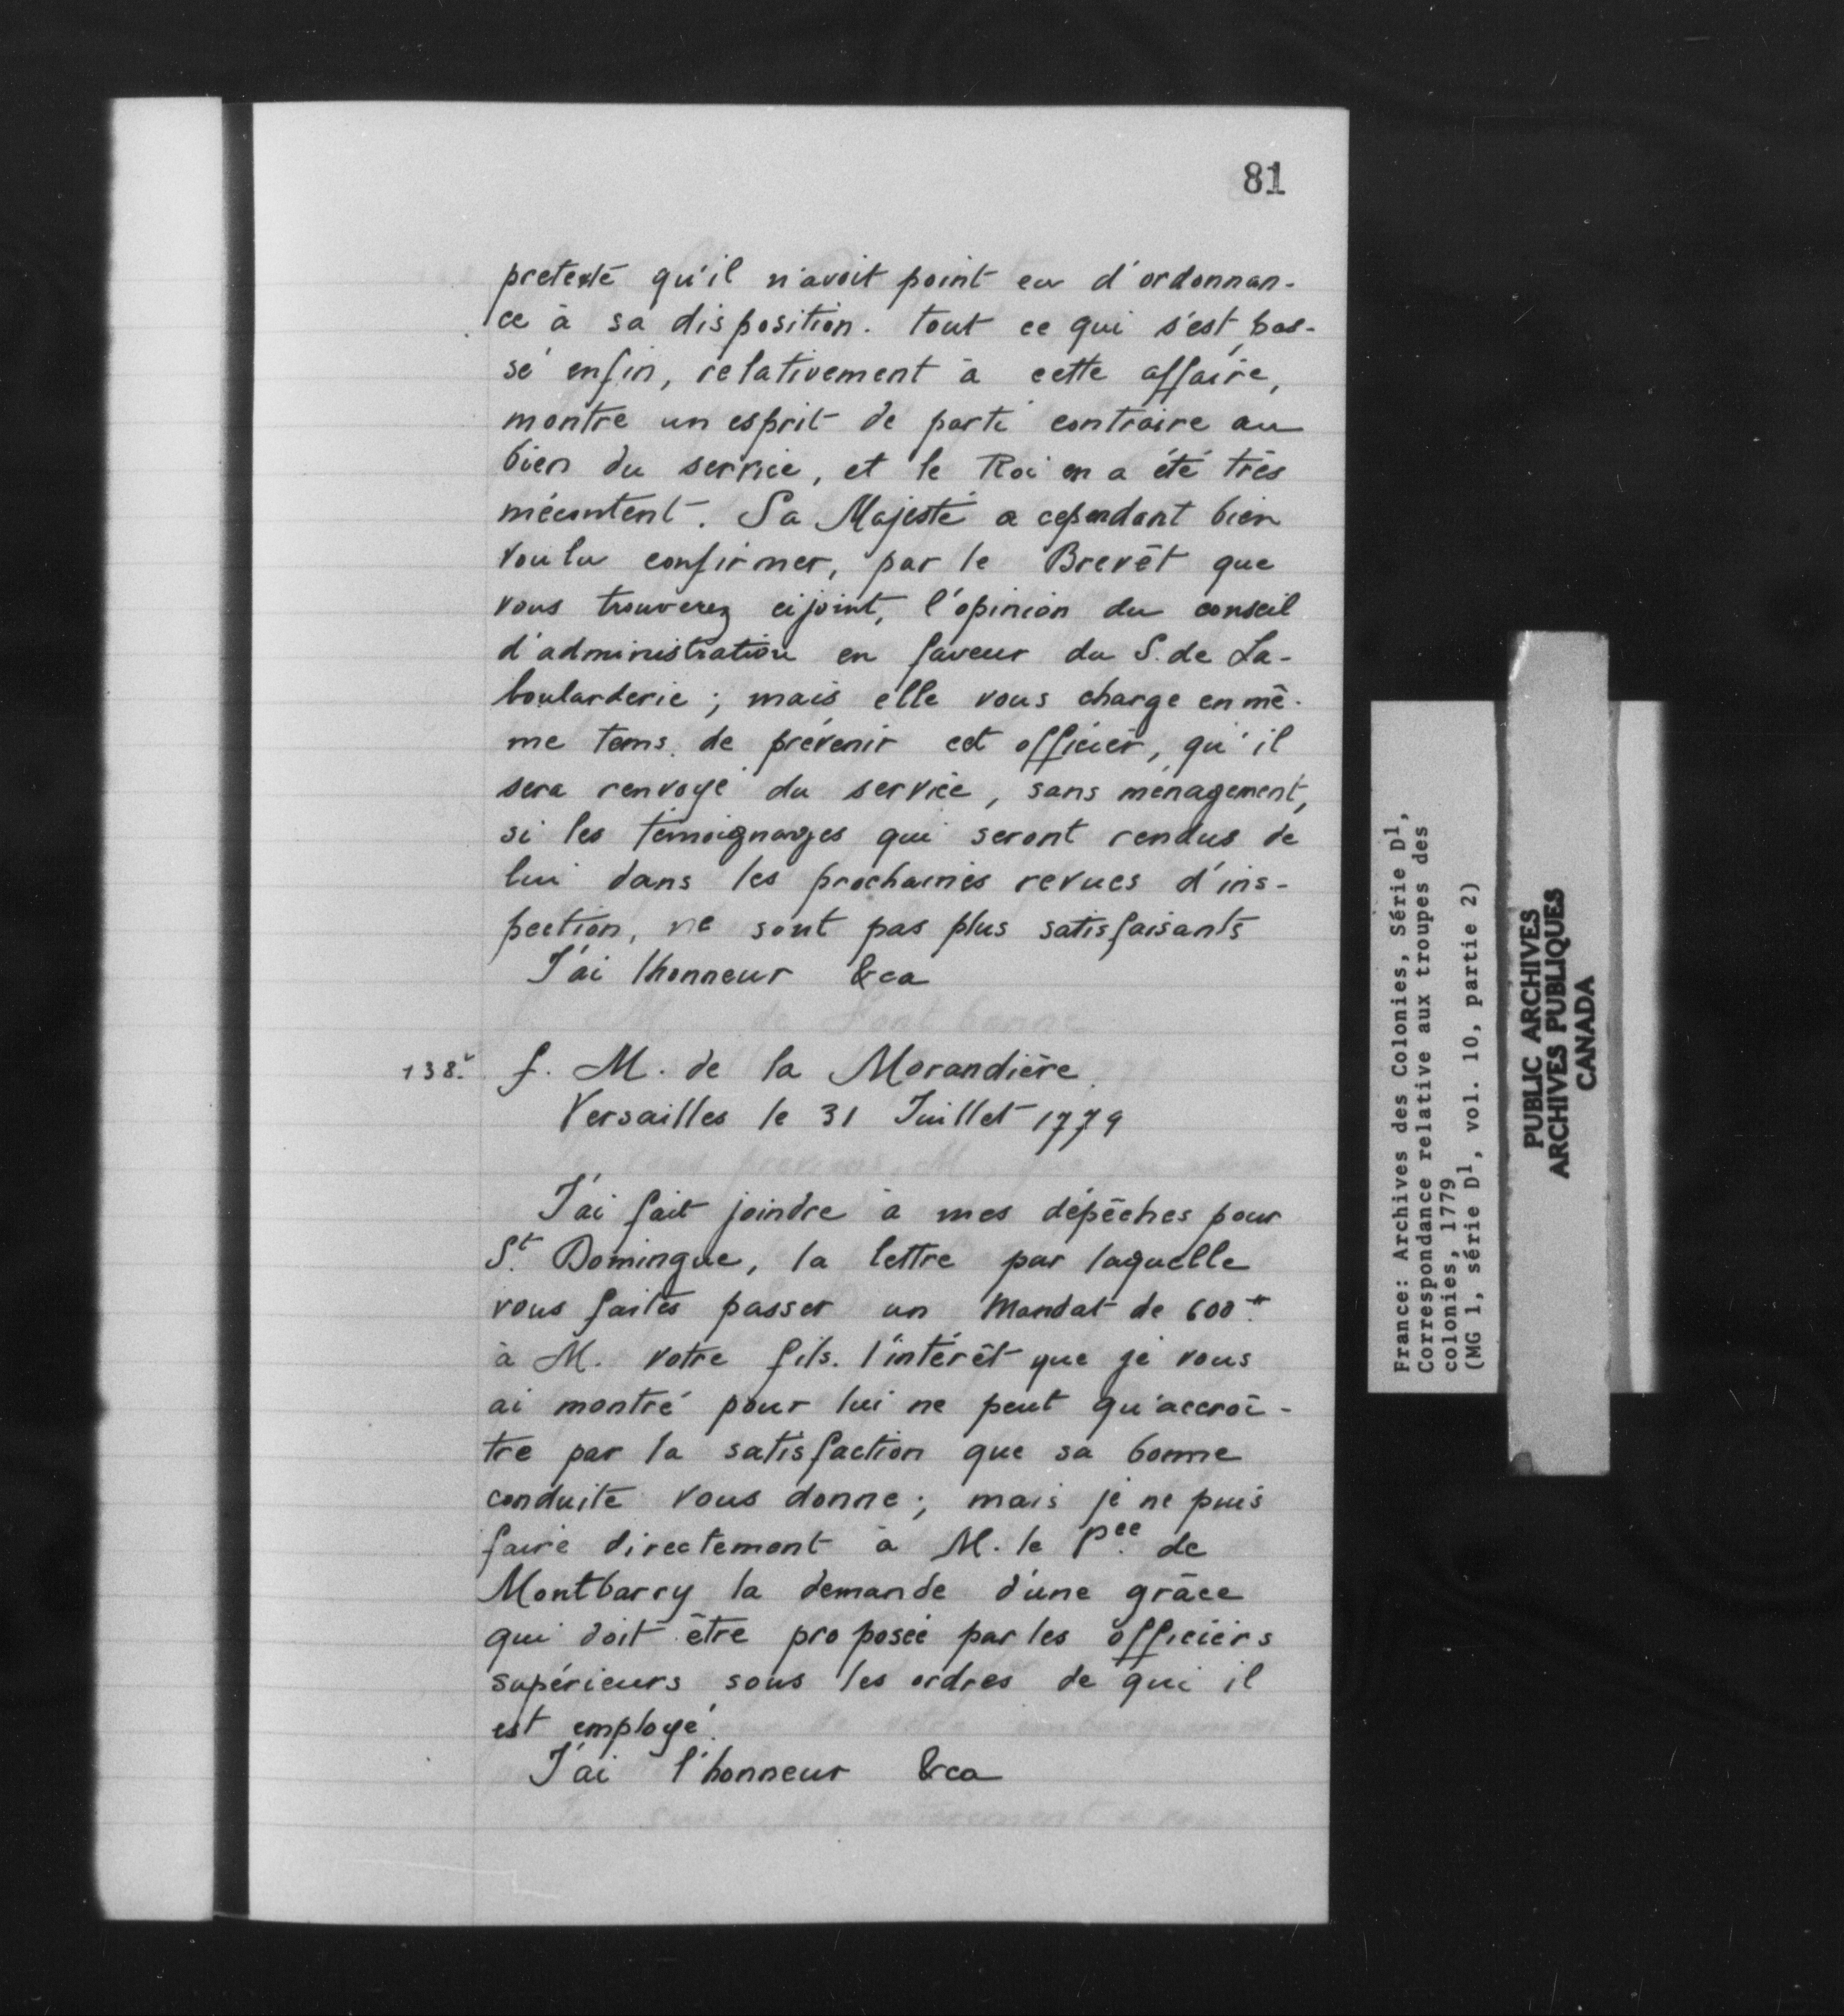 81
pretexté qu'il n'avoit point eu d'ordonnan-
ce à sa disposition. tout ce qui s'est pas-
sé enfin, relativement à cette affaire,
montre un esprit de parti contraire au
bien du service, et le Roi en a été très
mécontent. Sa Majesté a cependant bien
voulu confirmer, par le Brevêt que
vous trouverez cijoint, l'opinion du conseil
d'administration en faveur du S. de La-
boularderie; mais elle vous charge en mê-
me tems de prévenir cet officier, qu'il
sera renvoyé du service, sans ménagement,
si les témoignages qui seront rendus de
lui dans les prochaines revues d'ins-
pection, ne sont pas plus satisfaisants
J'ai lhonneur &ca
138. f. M. de la Morandière.
Versailles le 31 Juillet 1779
J'ai fait joindre à mes dépêches pour
St. Domingue, la lettre par laquelle
vous faites passer un Mandat de 600 ₶
à M. votre fils. l'intérêt que je vous
ai montré pour lui ne peut qu'accroî-
tre par la satisfaction que sa bonne
conduite vous donne; mais je ne puis
faire directement à M. le Pce. de
Montbarry la demande d'une grâce
qui doit être proposée par les officiers
supérieurs sous les ordres de qui il
est employé.
J'ai l'honneur &ca
France: Archives des Colonies, Série D1,
Correspondance relative aux troupes des
colonies, 1779
(MG 1, série D1, vol. 10, partie 2)
PUBLIC ARCHIVES
ARCHIVES PUBLIQUES
CANADA